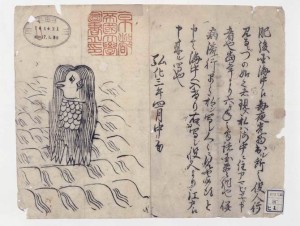 肥後国海中え毎夜光物出ル所之役人行
見るニづの如く者現ス私ハ海中ニ住アマビヱト申
者也當年より六ケ年之間諸国豊作也併
病流行早々私ヲ写シ人々ニ見セ候得と
申て海中へ入けり右ハ写シ役人より江戸え
申来ル写也
弘化三年四月中旬